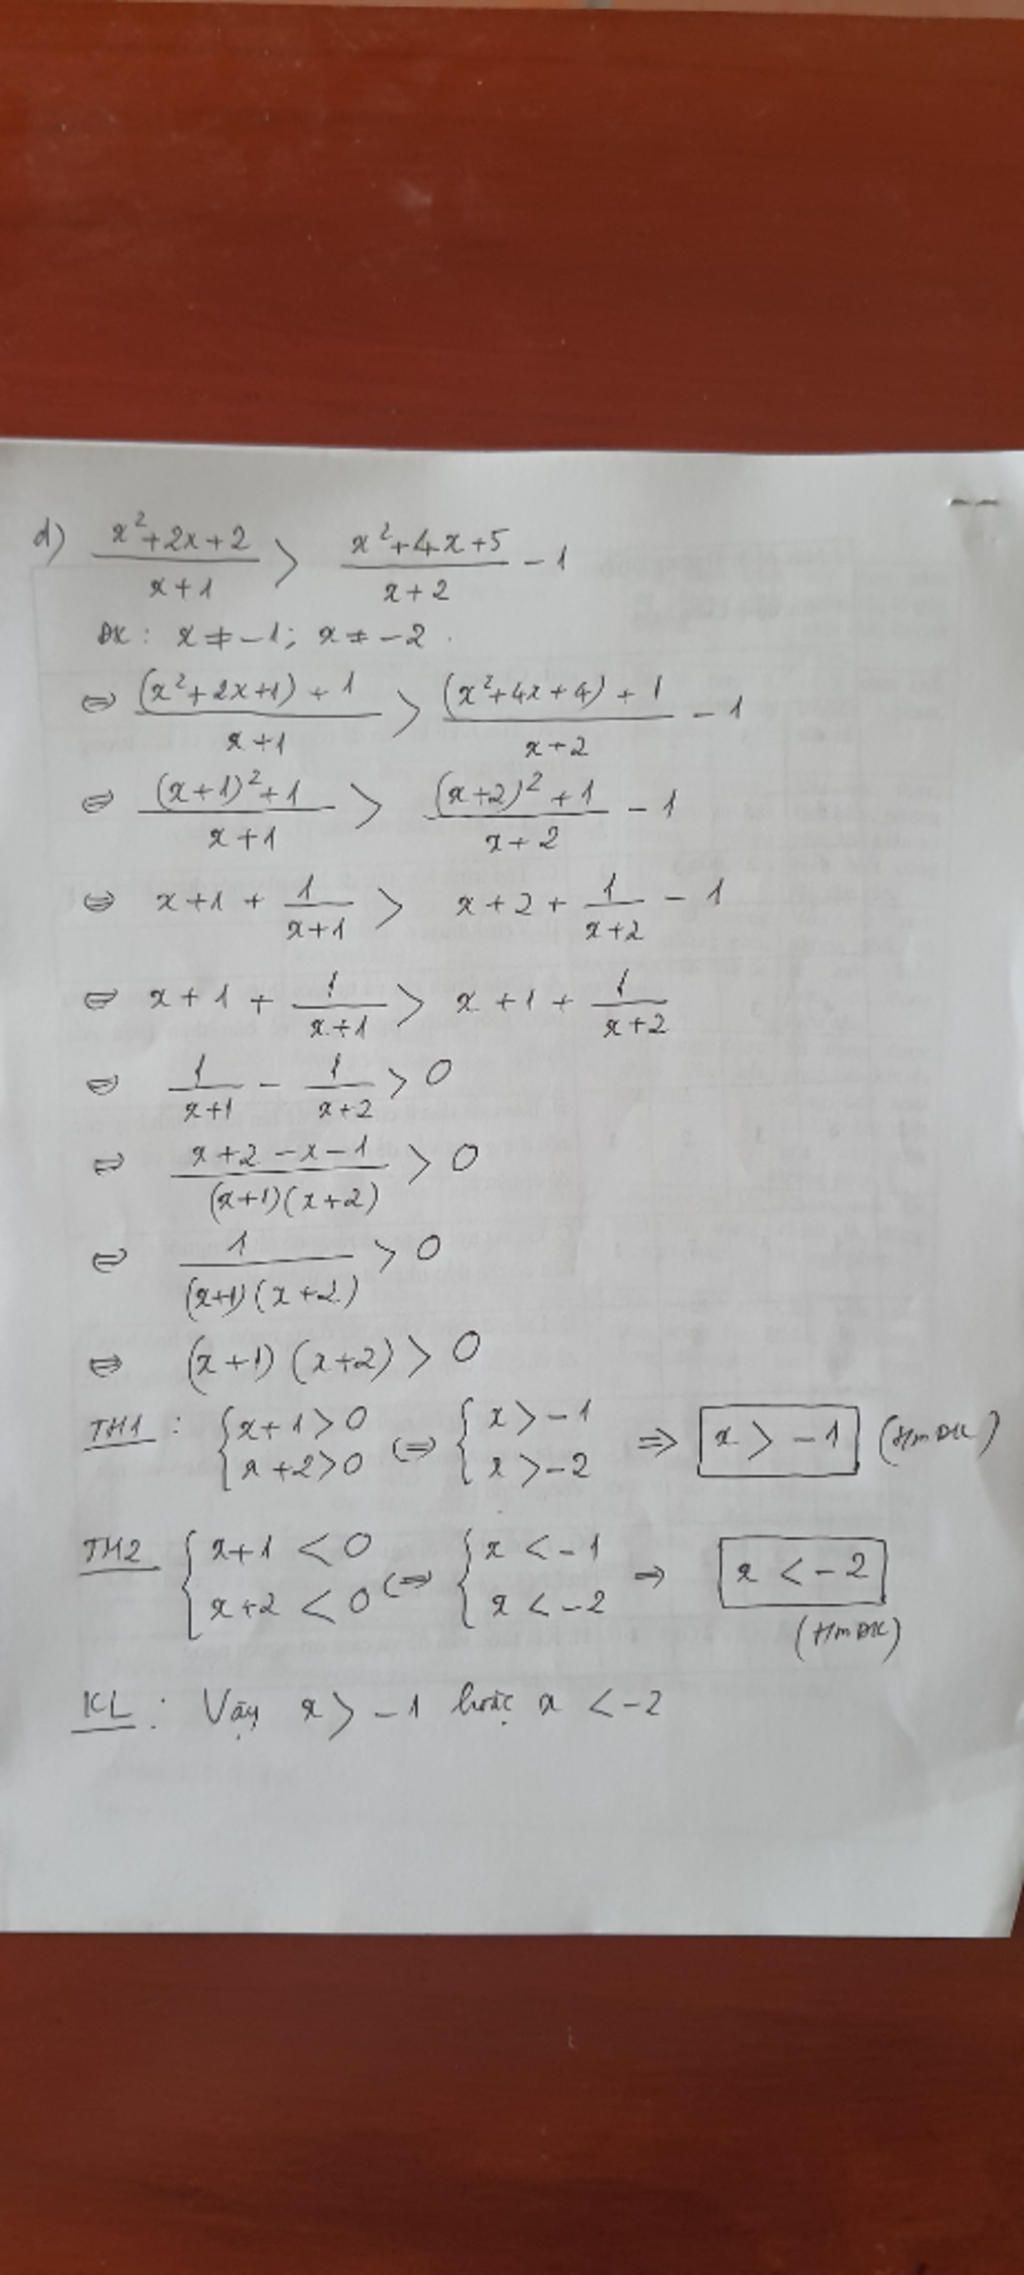 d) (x²+2x+2)/(x+1) > (x²+4x+5)/(x+2) - 1
ĐK: x ≠ -1; x ≠ -2.
⇔ ((x²+2x+1)+1)/(x+1) > ((x²+4x+4)+1)/(x+2) - 1
⇔ ((x+1)²+1)/(x+1) > ((x+2)²+1)/(x+2) - 1
⇔ x+1 + 1/(x+1) > x+2 + 1/(x+2) - 1
⇔ x+1 + 1/(x+1) > x+1 + 1/(x+2)
⇔ 1/(x+1) - 1/(x+2) > 0
⇔ (x+2-x-1)/((x+1)(x+2)) > 0
⇔ 1/((x+1)(x+2)) > 0
⇔ (x+1)(x+2) > 0
TH1: { x+1>0 ; x+2>0 (⇔) { x>-1 ; x>-2 ⇒ x > -1 (tmĐK)
TH2 { x+1<0 ; x+2<0 (⇔) { x<-1 ; x<-2 ⇒ x < -2
(tmĐK)
KL: Vậy x > -1 hoặc x < -2